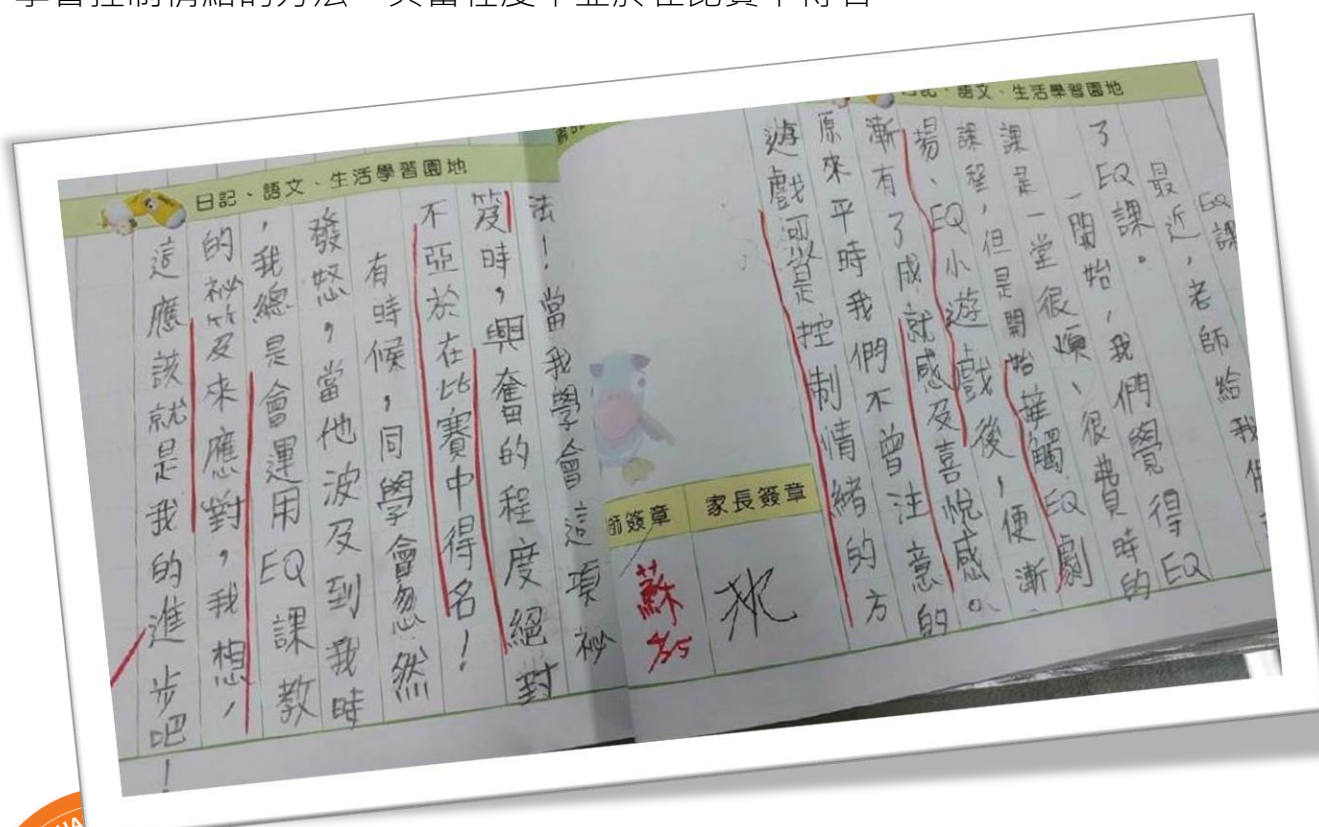 學會控制情緒的方法，興奮程度不亞於在比賽中得名
日記、語文、生活學習園地
EQ課
最近，老師給我
了EQ課。
一開始，我們覺得EQ
課是一堂很煩、很費時的
課程，但是開始華觸EQ劇
揚、EQ小遊戲後，便漸
漸有了成就感及喜悅感。
原來平時我們不曾注意的
遊戲是控制情緒的方
家長簽章
師簽章
蘇
日記、語文、生活學習園地
法！當我學會這項祕
笈時，興奮的程度絕對
不亞於在比賽中得名！
有時候，同學會忽然
發怒，當他波及到我時
，我總是會運用EQ課教
的祕笈及來應對，我想，
這應該就是我的進步吧！